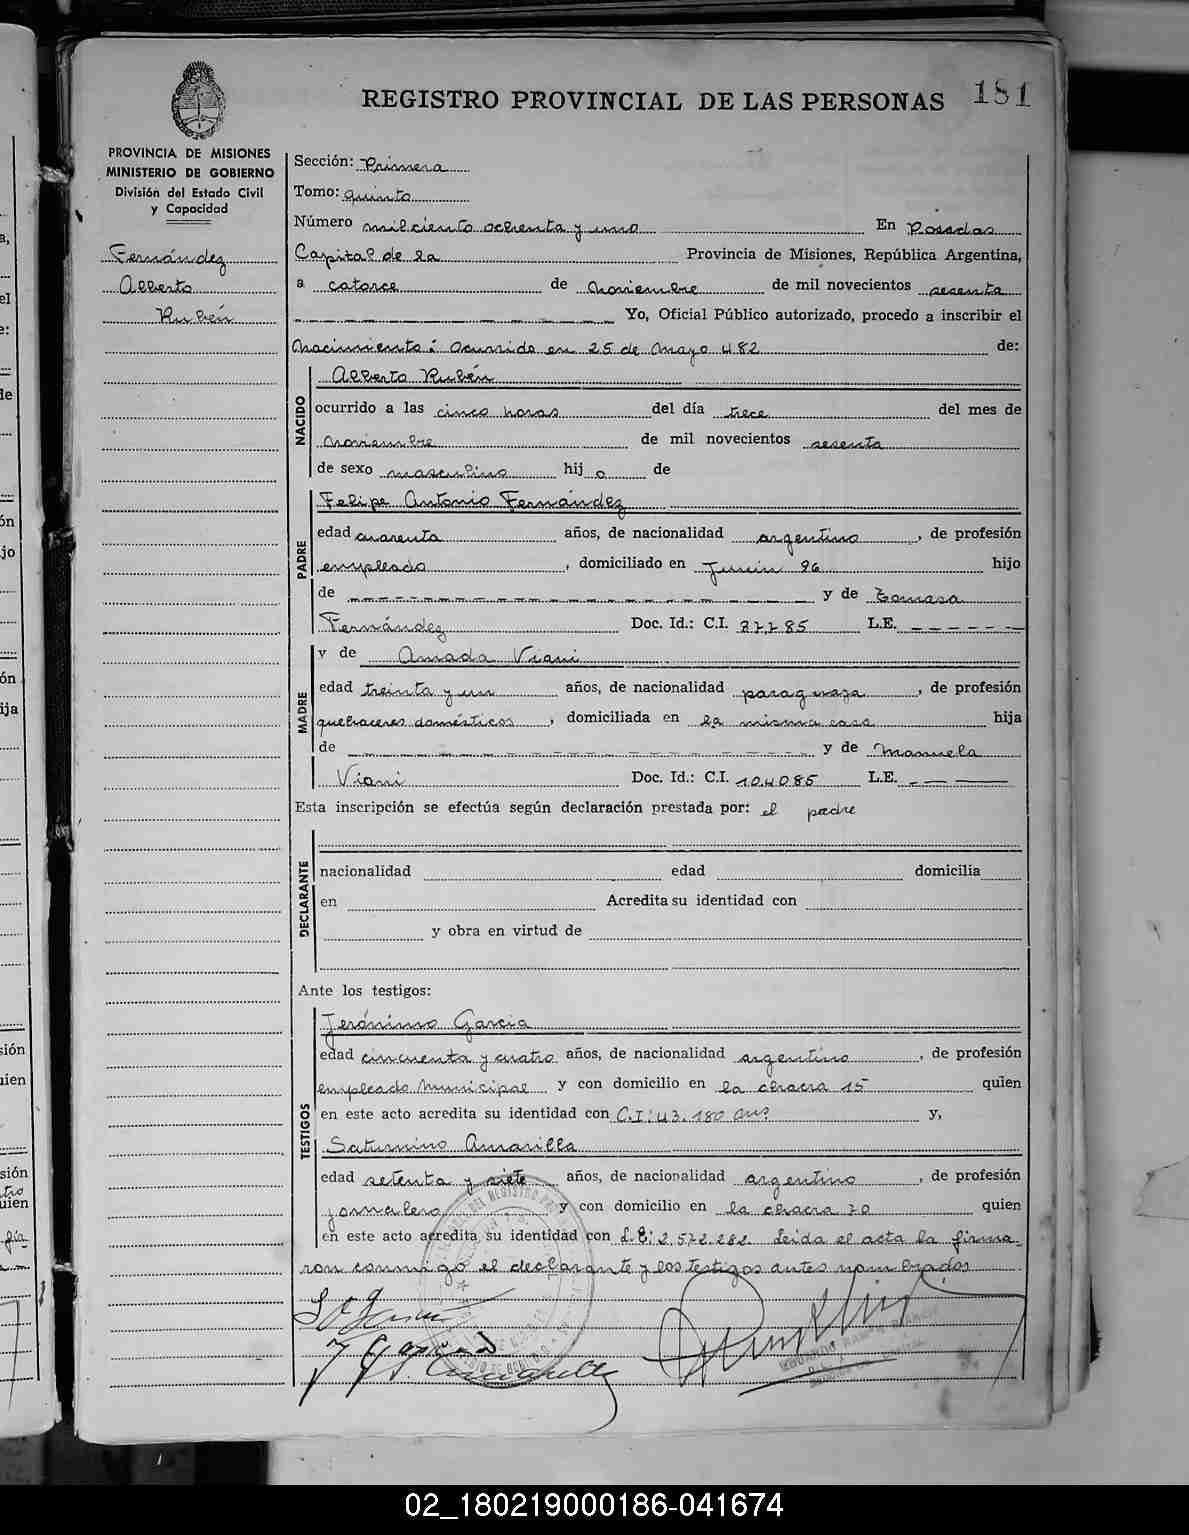 REGISTRO PROVINCIAL DE LAS PERSONAS 181
PROVINCIA DE MISIONES
MINISTERIO DE GOBIERNO
División del Estado Civil
y Capacidad
Fernández
Alberto
Rubén
Sección: Primera
Tomo: quinto
Número mil ciento ochenta y uno En Posadas
Capital de la Provincia de Misiones, República Argentina,
a catorce de noviembre de mil novecientos sesenta
Yo, Oficial Público autorizado, procedo a inscribir el
Nacimiento: ocurrido en 25 de Mayo 482 de:
NACIDO
Alberto Rubén
ocurrido a las cinco horas del día trece del mes de
noviembre de mil novecientos sesenta
de sexo masculino hij o de
PADRE
Felipe Antonio Fernández
edad cuarenta años, de nacionalidad argentino, de profesión
empleado, domiciliado en Junin 96 hijo
de y de Tomasa
Fernández Doc. Id.: C.I. 27.785 L.E.
MADRE
y de Amada Viani
edad treinta y un años, de nacionalidad paraguaya, de profesión
quehaceres domésticos, domiciliada en la misma casa hija
de y de Manuela
Viani Doc. Id.: C.I. 104085 L.E.
Esta inscripción se efectúa según declaración prestada por: el padre
DECLARANTE
nacionalidad edad domicilia
en Acredita su identidad con
y obra en virtud de
Ante los testigos:
TESTIGOS
Jerónimo Garcia
edad cincuenta y cuatro años, de nacionalidad argentino, de profesión
empleado municipal y con domicilio en la chacra 15 quien
en este acto acredita su identidad con C.I: 43.180 y,
Saturnino Amarilla
edad setenta y siete años, de nacionalidad argentino, de profesión
jornalero y con domicilio en la chacra 70 quien
en este acto acredita su identidad con L.E: 2.572.282. Leida el acta la firma-
ron conmigo el declarante y los testigos antes nombrados
02_180219000186-041674